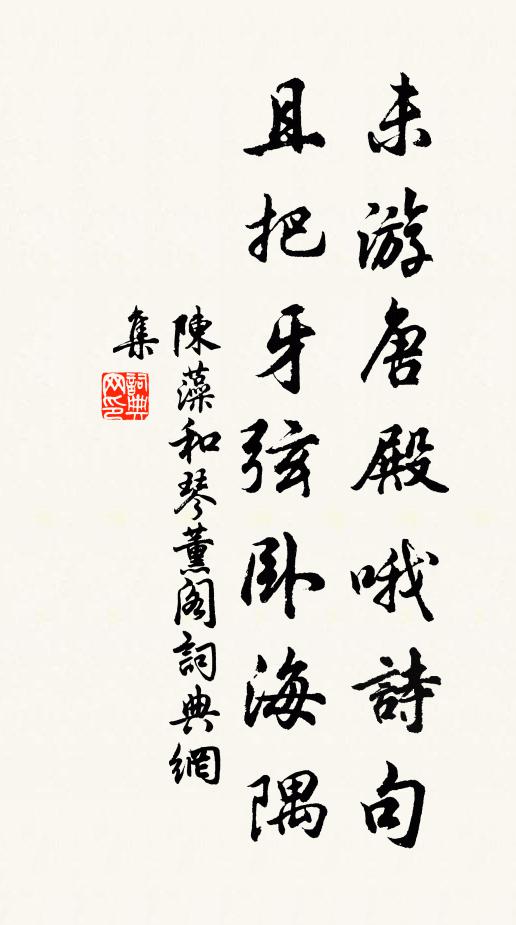 未游唐殿哦詩句
且把牙弦卧海隅
陳藻和琴薰阁詞典網
集
詞典网印